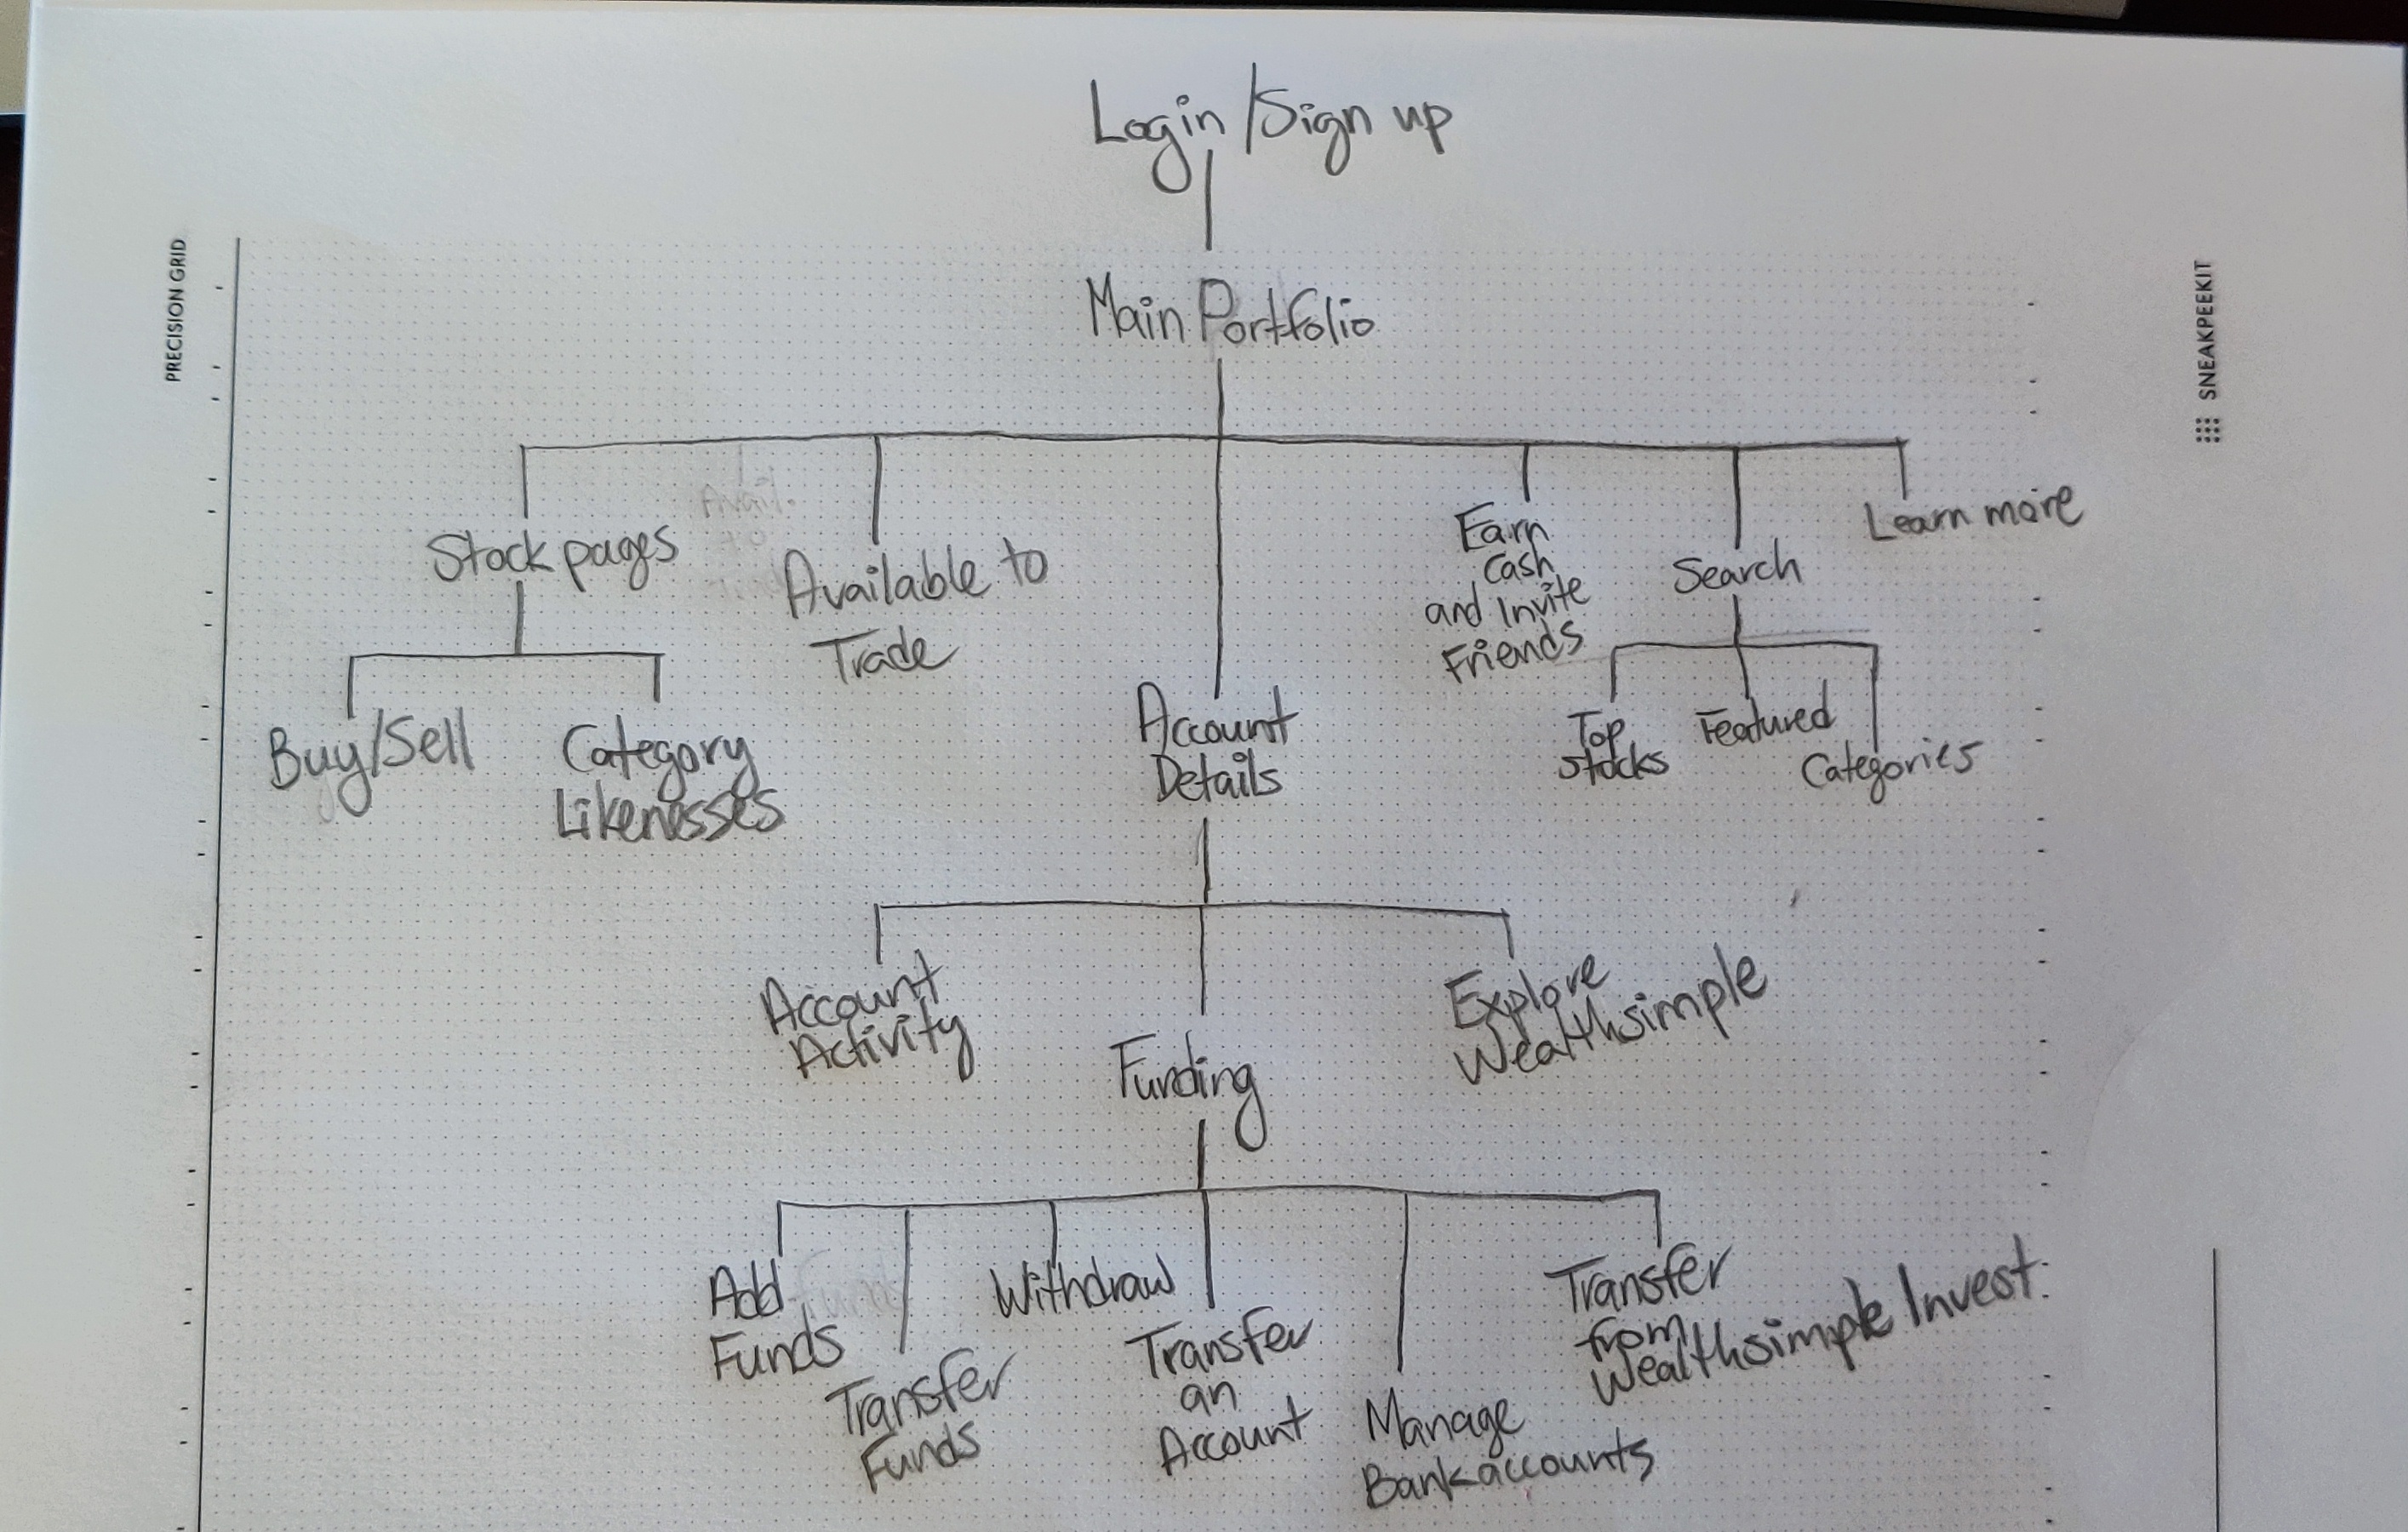 Login/Sign up
PRECISION GRID
SNEAKPEEKIT
Main Portfolio
Stock pages
Available to
Trade
Earn
Cash
and Invite
Friends
Search
Learn more
Buy/Sell
Category
Likenesses
Account
Details
Top
Stocks
Featured
Categories
Account
Activity
Funding
Explore
Wealthsimple
Add
Funds
Transfer
Funds
Withdraw
Transfer
an
Account
Manage
Bank accounts
Transfer
from
Wealthsimple Invest.